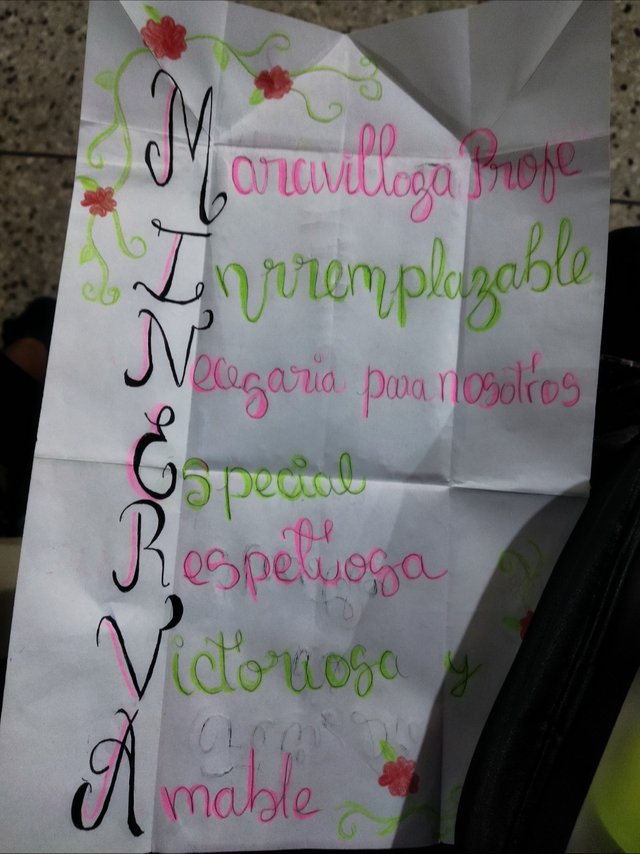 Maravillosa Profe
Inrremplazable
Necesaria para nosotros
Especial
Respetuosa
Victoriosa y
Amable